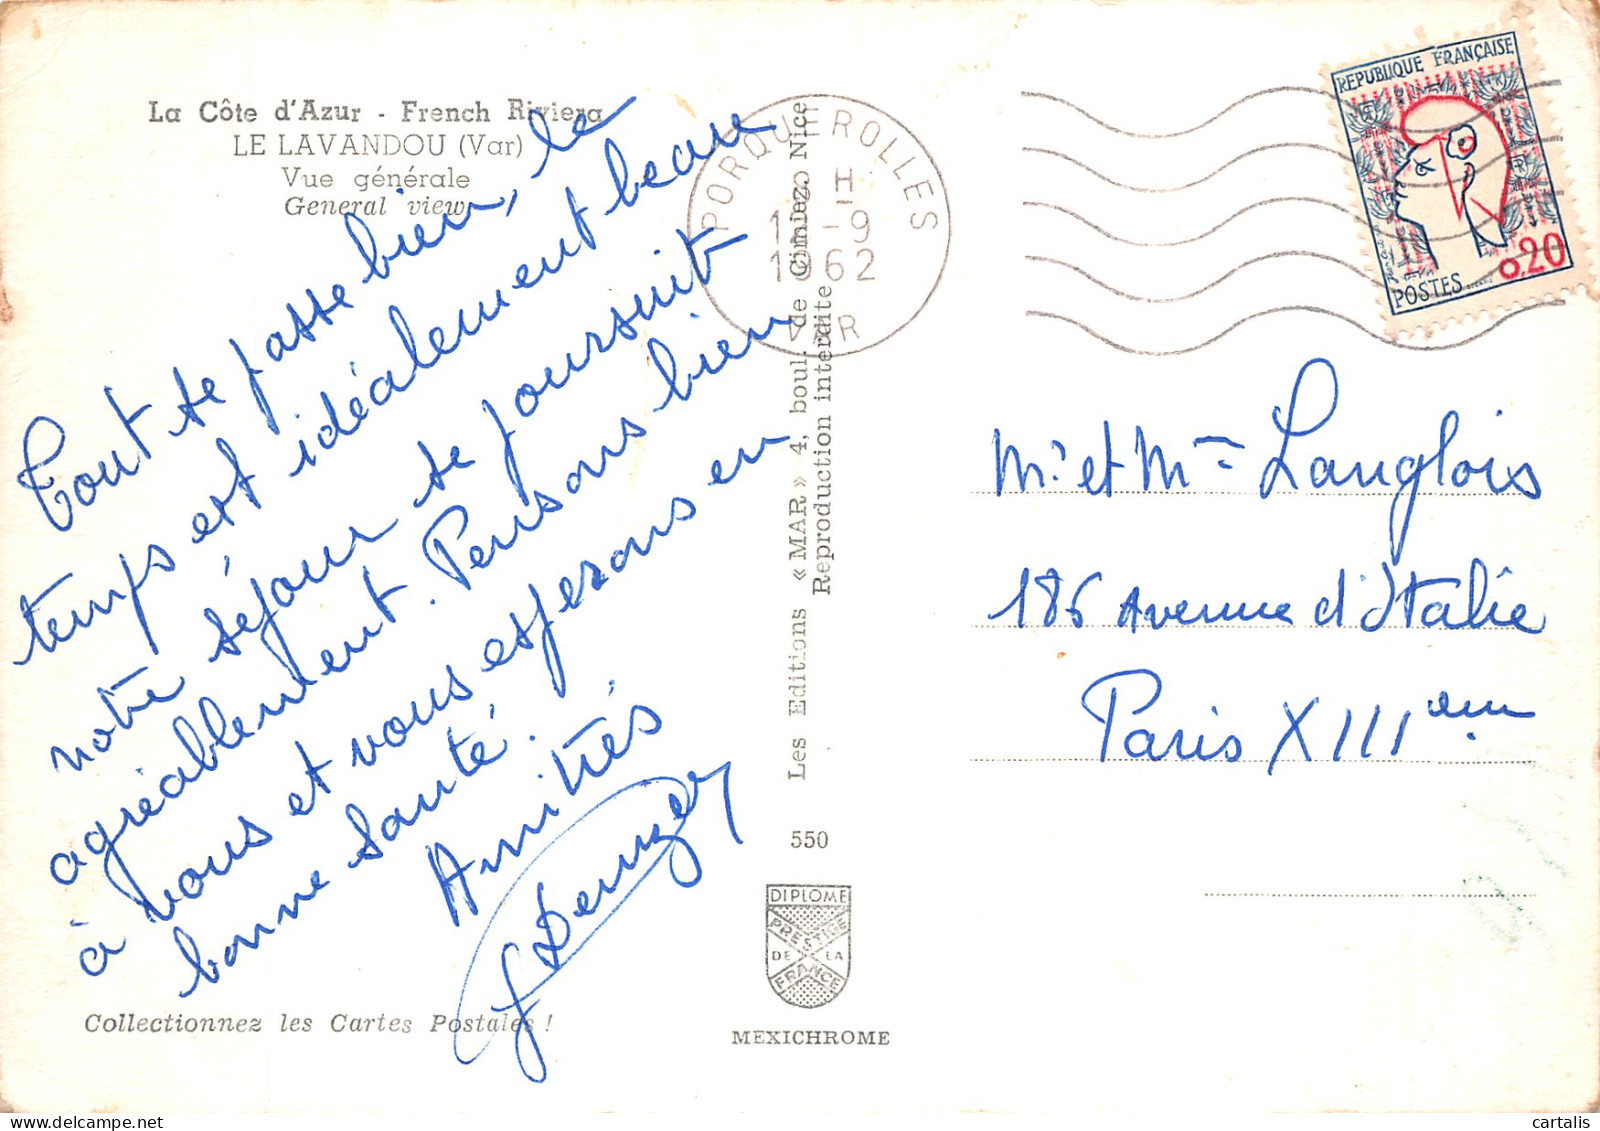 La Côte d'Azur - French Riviera
LE LAVANDOU (Var)
Vue générale
General view
Tout se passe bien, le
temps est idéalement beau
notre séjour se poursuit
agréablement. Pensons bien
à vous et vous esperons en
bonne santé.
Amitiés
Collectionnez les Cartes Postales !
Les Editions « MAR » 4, boul. de Cimiez. Nice
Reproduction interdite
550
DIPLOME
PRESTIGE
DE LA
FRANCE
MEXICHROME
PORQUEROLLES
H
-9
1962
VAR
REPUBLIQUE FRANÇAISE
0,20
POSTES
Mr et Mme Langlois
186 Avenue d'Italie
Paris XIIIem
cartalis